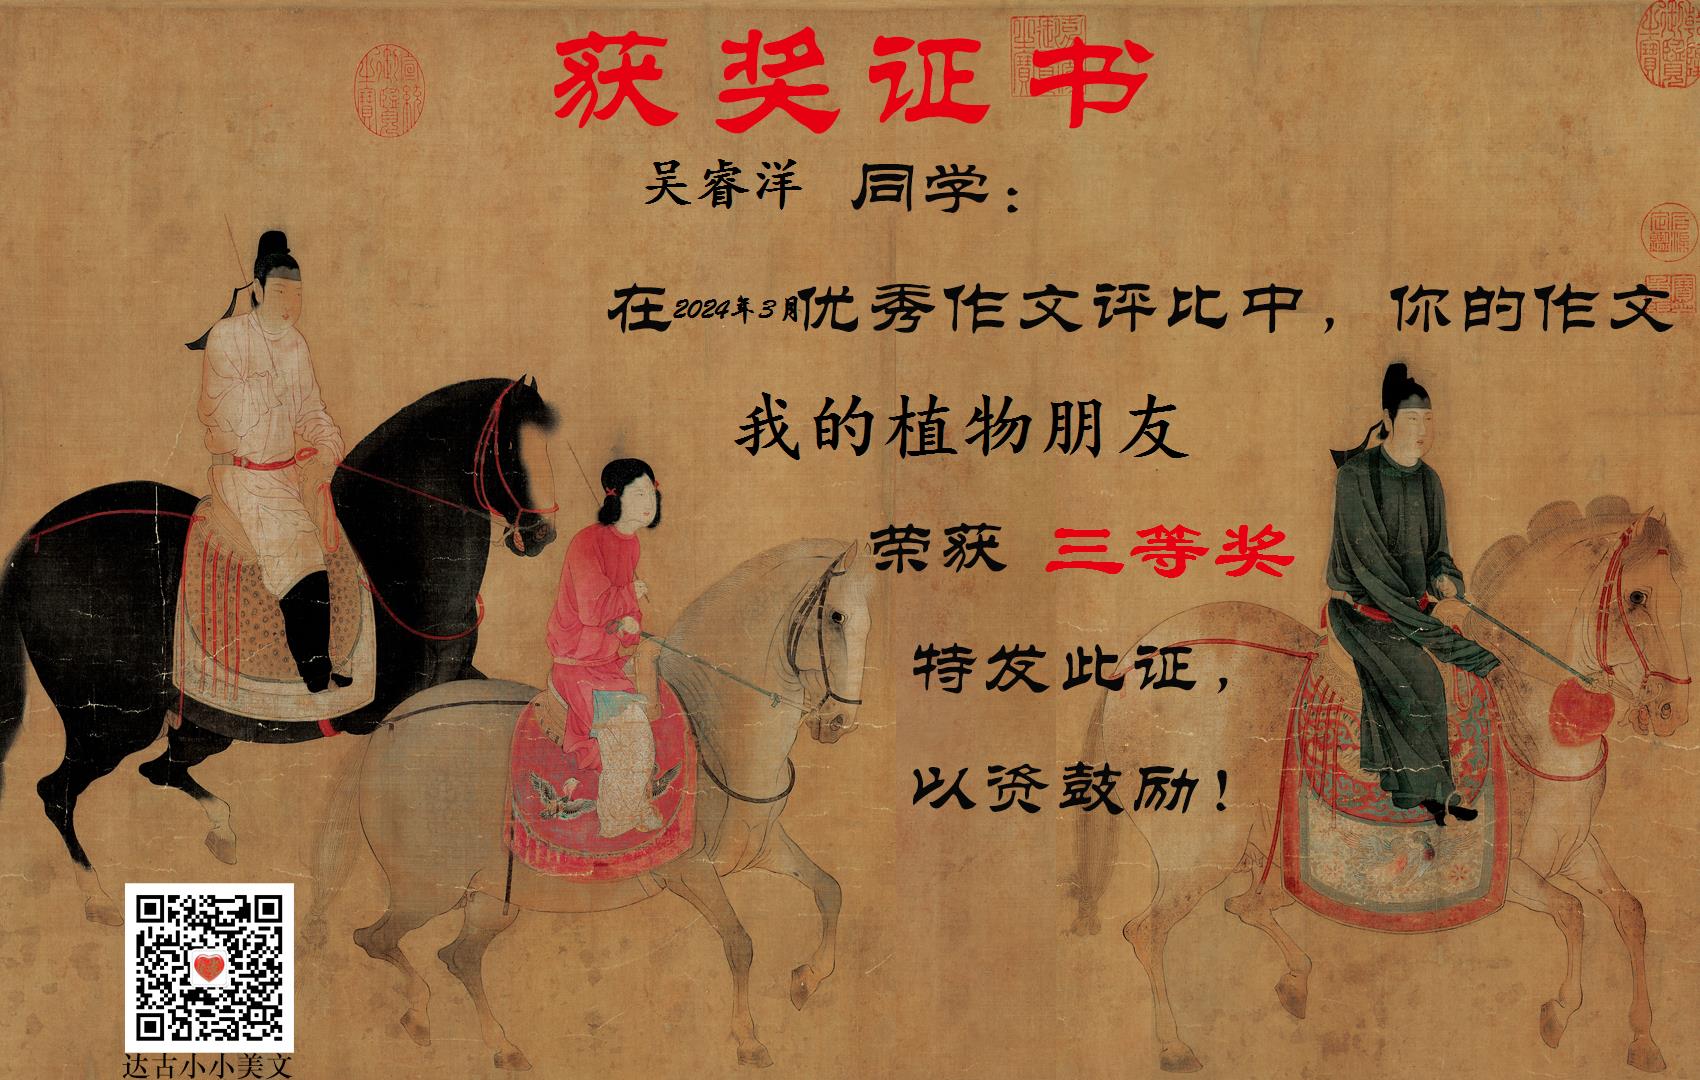 获奖证书
吴睿洋 同学：
在2024年3月优秀作文评比中，你的作文
我的植物朋友
荣获 三等奖
特发此证，
以资鼓励！
达古小小美文